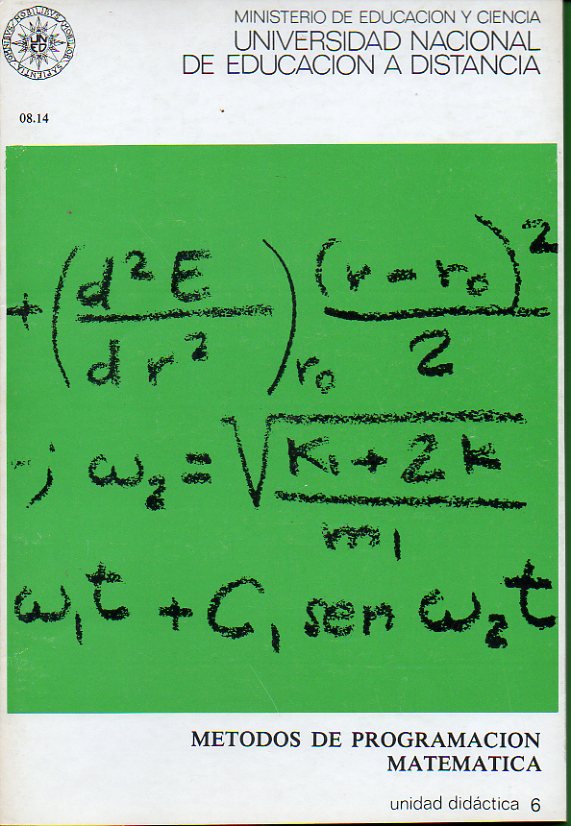 MINISTERIO DE EDUCACION Y CIENCIA
UNIVERSIDAD NACIONAL
DE EDUCACION A DISTANCIA
OMNIBVS MOBILIBVS MOBILIOR SAPIENTIA
UNED
08.14
+ (d²E / dr²)r₀ (r - r₀)² / 2
; ω₂ = √(K₁ + 2k / m₁)
ω₁t + C₁ sen ω₂t
METODOS DE PROGRAMACION
MATEMATICA
unidad didáctica 6